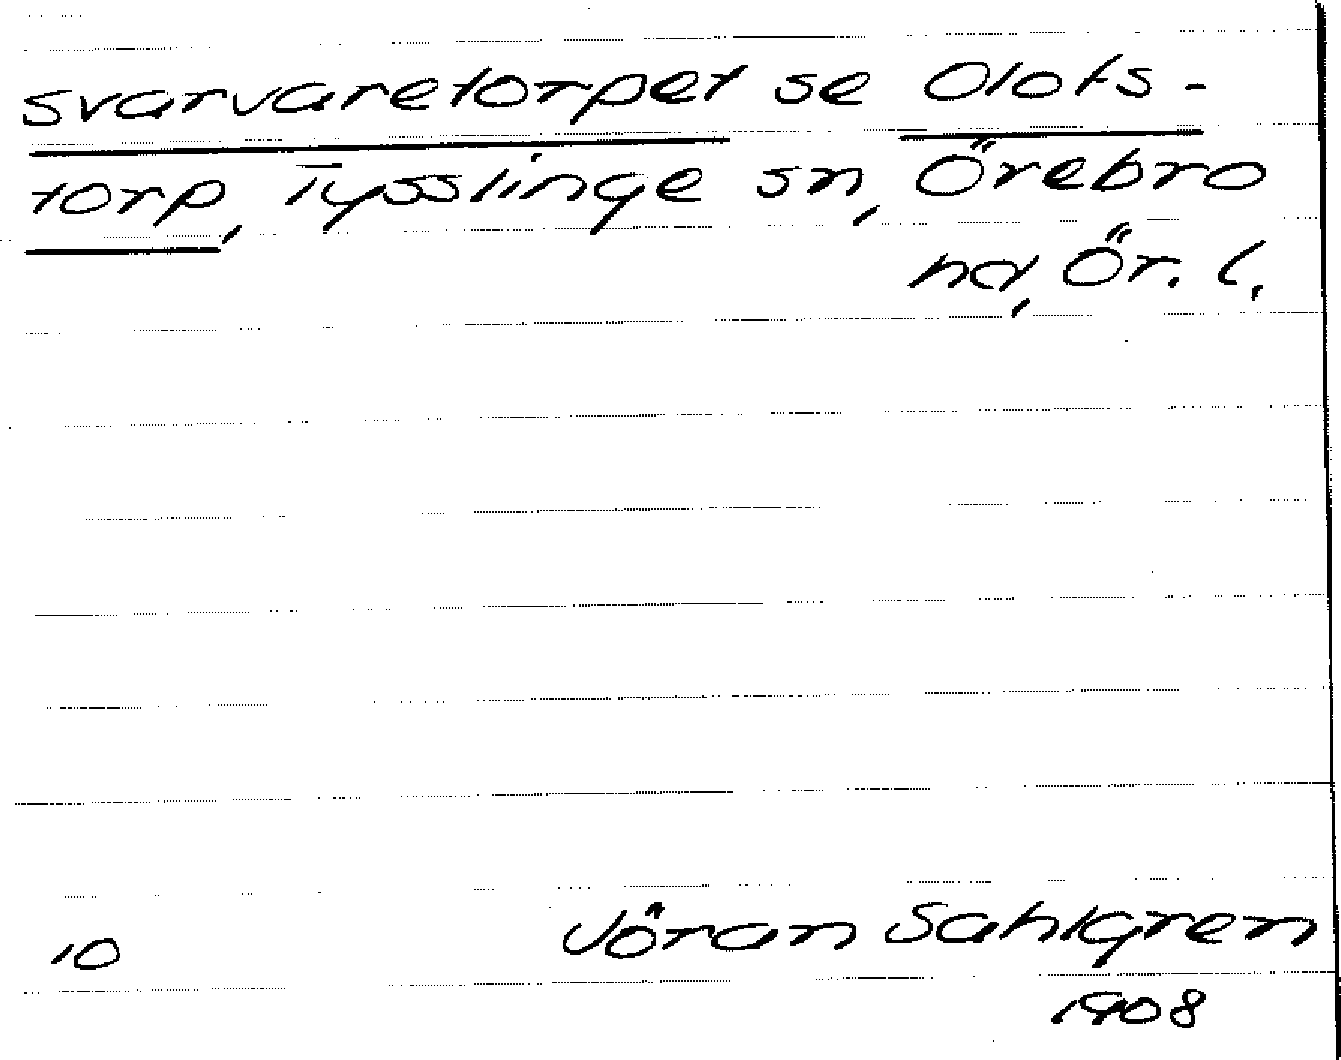 Svarvaretorpet se Olofs-
torp, Tysslinge sn, Örebro
hd, Ör. l.
10 Jöran Sahlgren
1908